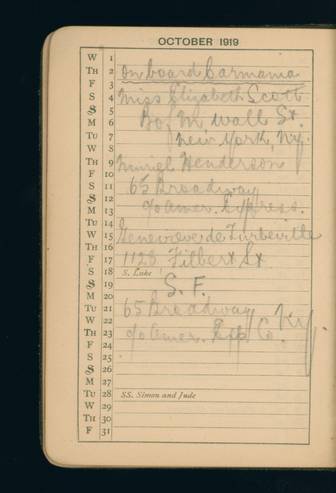 OCTOBER 1919
W 1
TH 2 On board Carmania
F 3
S 4 Miss Elizabeth Scott
S 5
M 6 Box M, Wall St.
TU 7 New York, N.Y.
W 8
TH 9 Muriel Henderson
F 10
S 11 65 Broadway
S 12
M 13 c/o Amer. Express.
TU 14
W 15 Genevieve de Turbeville
TH 16
F 17 1128 Filbert St
S 18 S. Luke
S 19 S. F.
M 20
TU 21 65 Broadway N.Y.
W 22
TH 23 c/o Amer. Exp. Co.
F 24
S 25
S 26
M 27
TU 28 SS. Simon and Jude
W 29
TH 30
F 31